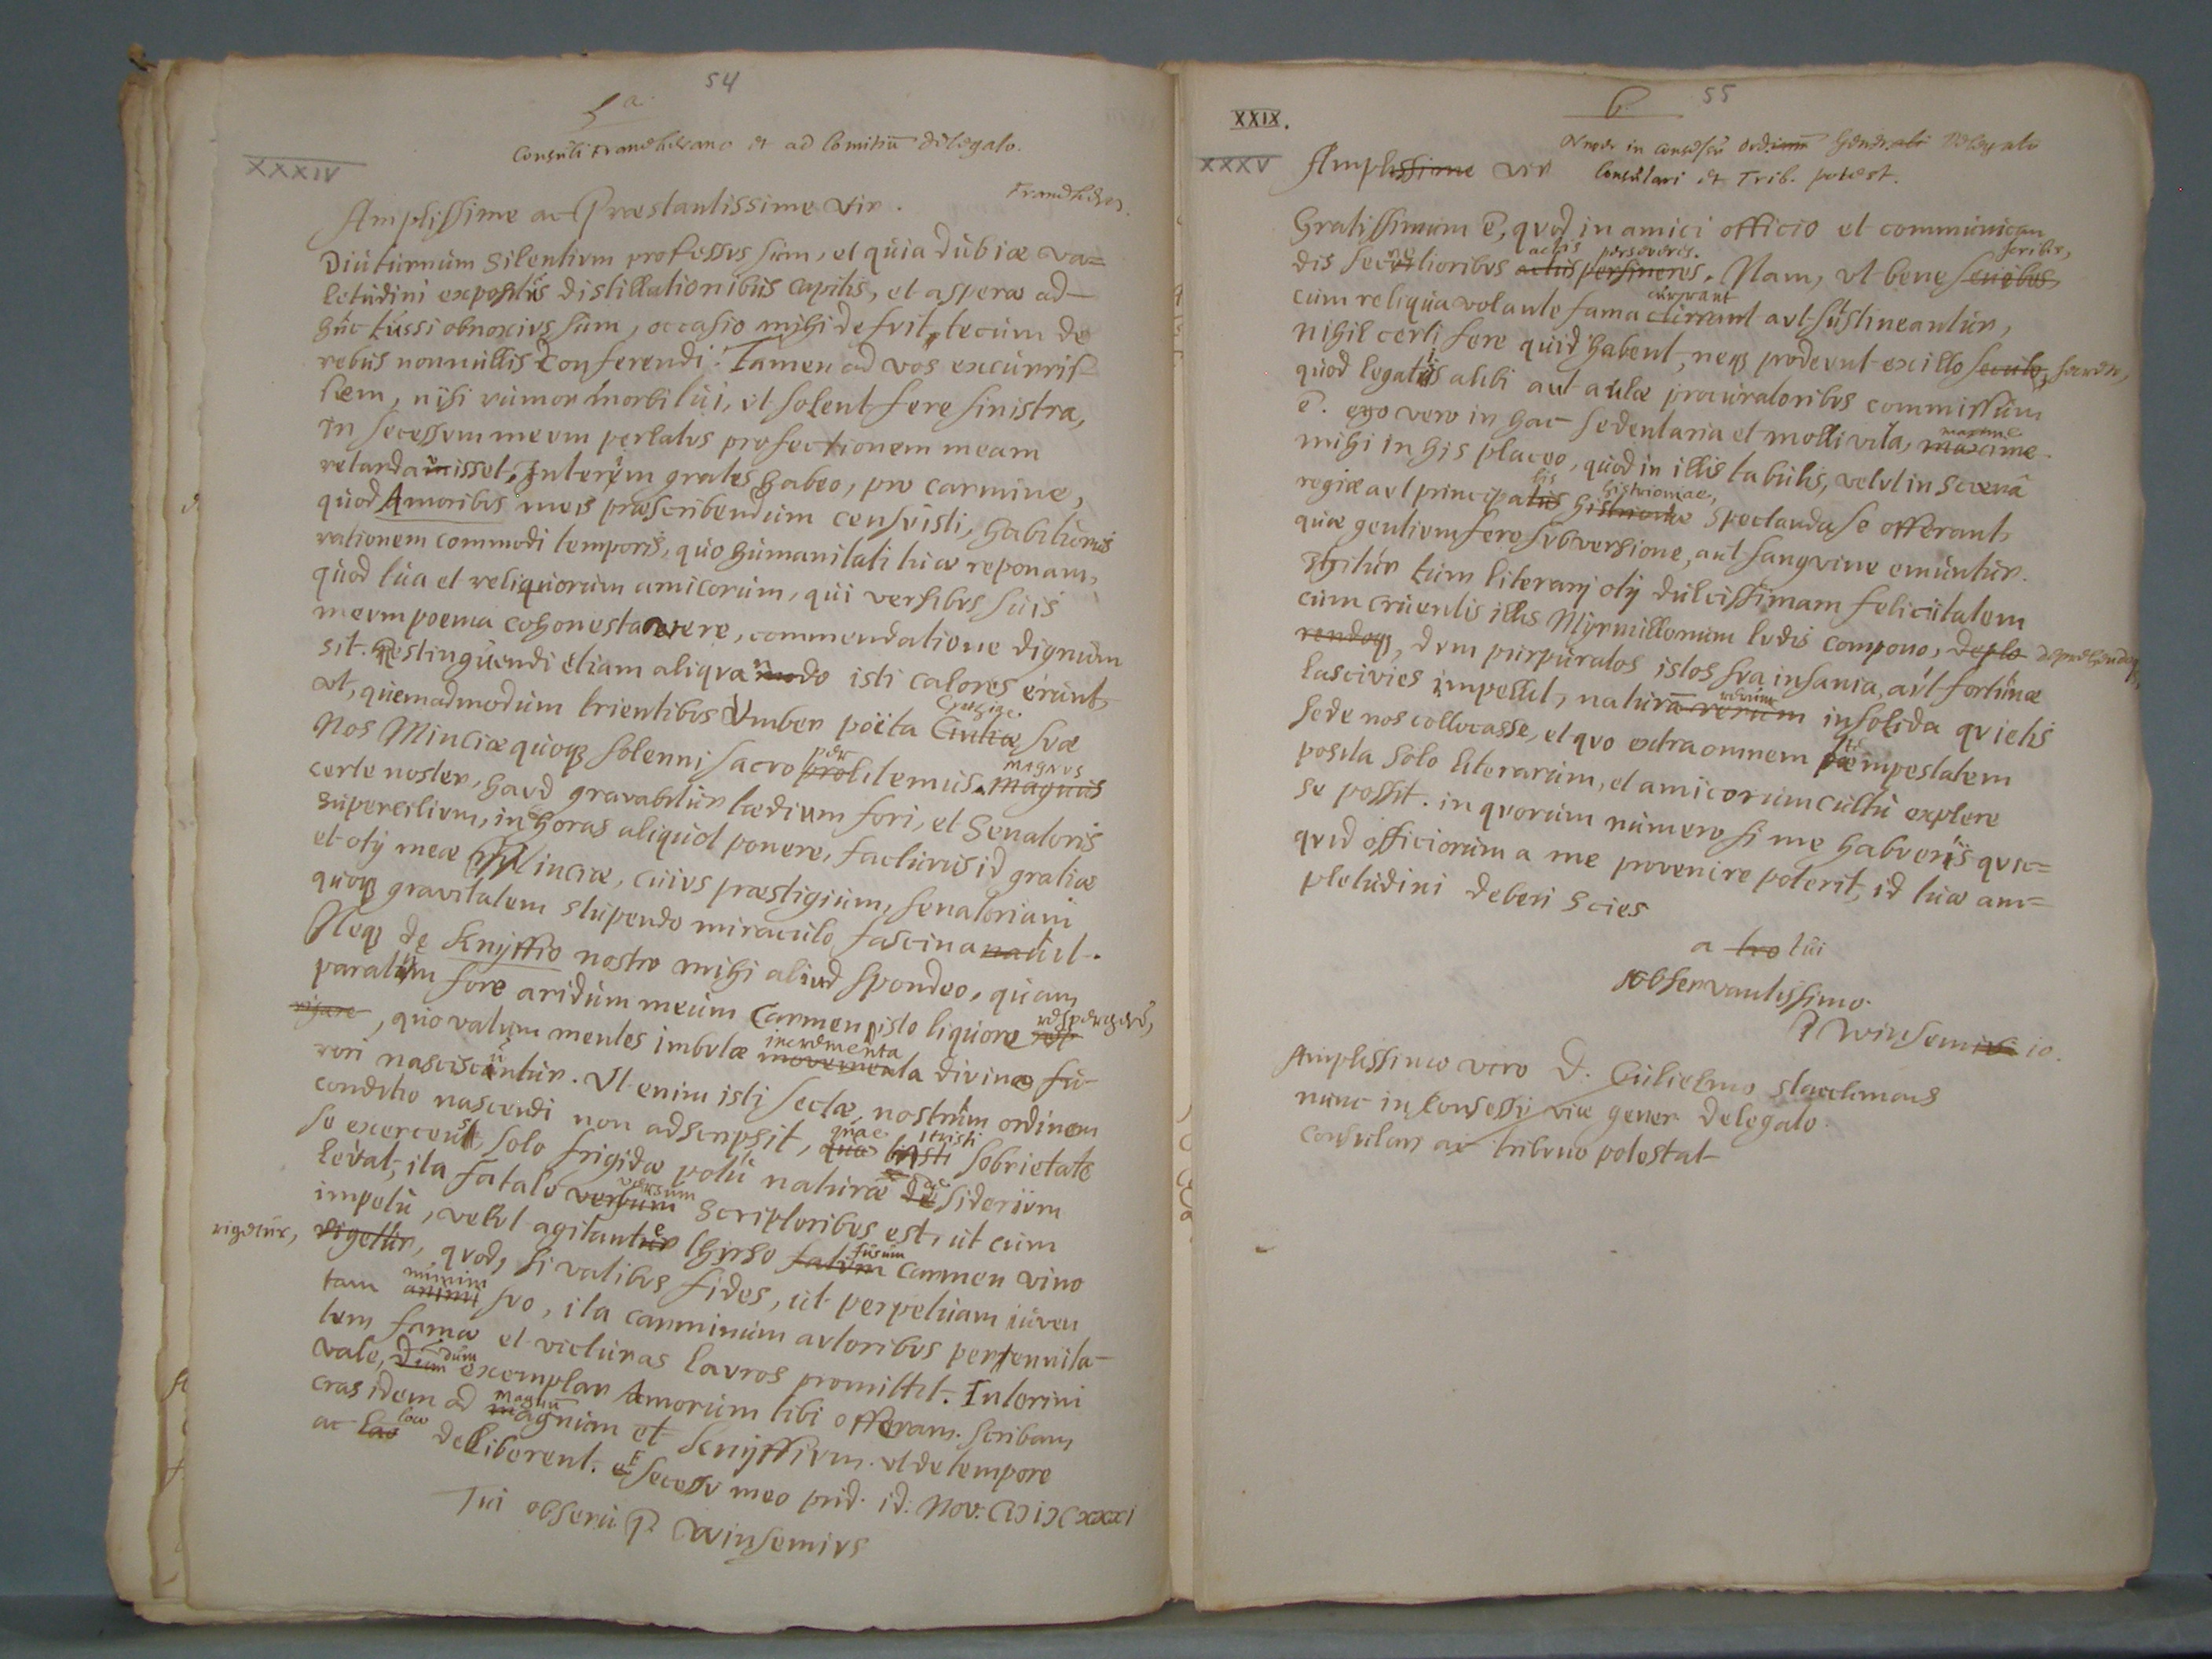 54
a.
Consuli Franekerano et ad Comitiū delegato.
XXXIV
Franekera.
Amplissime ac Præstantissime Vir.
Diuturnum silentium professus sum, et quia dubiæ va=
letudini expositus distillationibus capitis, et asperæ ad-
huc tussi obnoxius sum, occasio mihi defuit, tecum de
rebus nonnullis Conferendi. Tamen ad vos excurris-
sem, nisi rumor morbi lui, ut solent fere sinistra,
in secessum meum perlatus profectionem meam
retardavisset. Interim grates habeo, pro carmine,
quod Amoribus meis præscribendum censuisti, habiturus
rationem commodi temporis, quo humanitati tuæ reponam,
quod tua et reliquorum amicorum, qui versibus suis
meum poema cohonestavere, commendatione dignum
sit. Restinguendi etiam aliqvando isti calores erunt,
ut, quemadmodum trientibus Umber poëta Cynthiae suæ
Nos Minciæ quoqȝ solenni sacro perlitemus. magnus
certe noster, haud gravabitur tædium fori, et Senatoris
supercilium, in horas aliquot ponere, facturus id gratiæ
et otij meæ Minciæ, cuius præstigium, senatoriam
quoqȝ gravitatem stupendo miraculo fascinavit.
Neqȝ de Knijffio nostro mihi aliud spondeo, quam
paratum fore aridum meum Carmen isto liquore respergere,
rigare, quo vatum mentes imbutæ incrementa divino fu-
rori nasciscuntur. Ut enim isti sectæ nostrum ordinem
conditio nascendi non adscripsit, quae tristi sobrietate
se exercens, solo frigidæ potu naturæ desiderium
levat, ita fatale versum scriptoribus est, ut cum
impetu, velut agitante thyrso fusum carmen vino
rigetur, rigetur, quod, si vatibus fides, ut perpetuam iuven
tam numini suo, ita carminum autoribus perennita-
tem famæ et victuras lauros promittit. Interim
vale, dum exemplar Amorum tibi offeram. Scribam
cras idem ad magnum et Knijffium. ut de tempore
ac loco deliberent. E secessu meo prid. id. Nov. CIↃ IↃC XXXI
Tui observ. P. Winsemius
XXIX.
b.
55
XXXV
Amplissime Vir
nunc in consessu ordinum Generali Delegato
Consulari et Trib. potest.
Gratissimum ē, quod in amici officio et communican
dis secretioribus actis perseveris. Nam, ut bene scribis,
cum reliqua volante fama currant aut sustineantur,
nihil certi fere quid habent, neqȝ prodeunt ex illo secreto,
quod legatis alibi aut aulæ procuratoribus commissum
ē. ego vero in hac sedentaria et molli vita, maxime
mihi in his placeo, quod in illis tabulis, velut in scena
regiæ aut principalis histrioniae, spectanda se offerant,
quæ gentium fere subversione, aut sangvine emuntur.
Igitur tum literarij otij dulcissimam felicitatem
cum cruentis illis Myrmillonum ludis compono, deprehendoqȝ,
rendoqȝ, dum purpuratos istos sua insania, aut fortunæ
lascivies impellit, naturā rerum in solida quietis
sede nos collocasse, et quo extra omnem tempestatem
posita solo literarum, et amicorum cultu explere
se possit. in quorum numero si me habueris quic=
quid officiorum a me provenire poterit, id tuæ am=
pletudini deberi scies
a tui
observantissimo
P Winsemio.
Amplissimo viro D. Gulielmo Staeckmans
nunc in Consessu gener delegato
consulari ac tribuno potestat